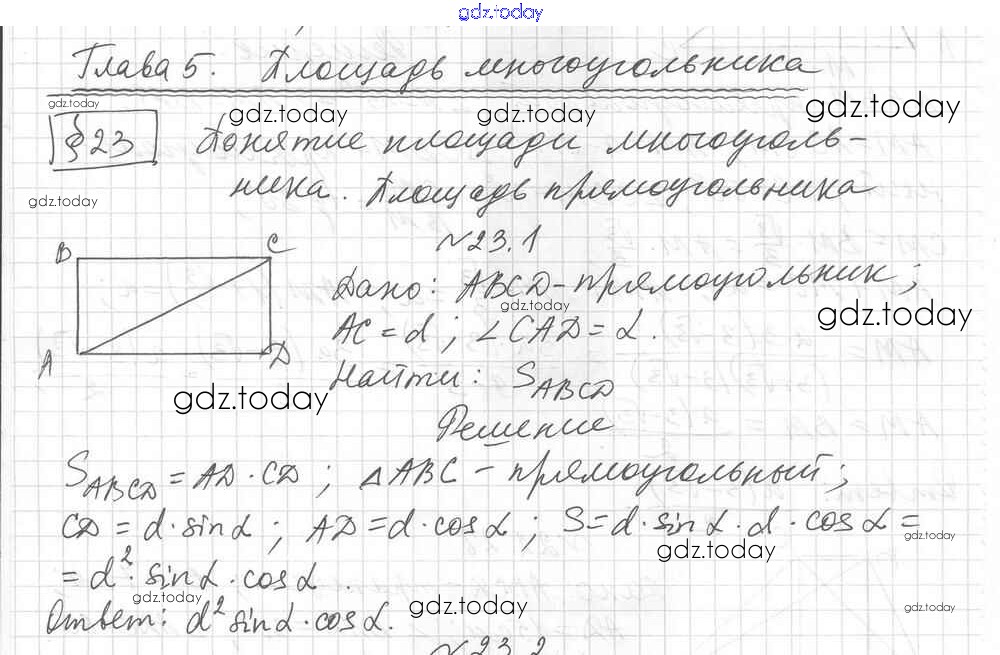 gdz.today
Глава 5. Площадь многоугольника
gdz.today
gdz.today gdz.today gdz.today
§ 23 Понятие площади многоуголь-
gdz.today
ника. Площадь прямоугольника
№23.1
B C
Дано: ABCD - прямоугольник;
gdz.today
gdz.today
AC = d; ∠CAD = α.
A D
Найти: S_ABCD
gdz.today
Решение
S_ABCD = AD · CD; △ABC - прямоугольный;
CD = d · sin α; AD = d · cos α; S = d · sin α · d · cos α =
gdz.today
gdz.today
= d² · sin α · cos α.
gdz.today
gdz.today
gdz.today
Ответ: d² sin α · cos α.
№23.2